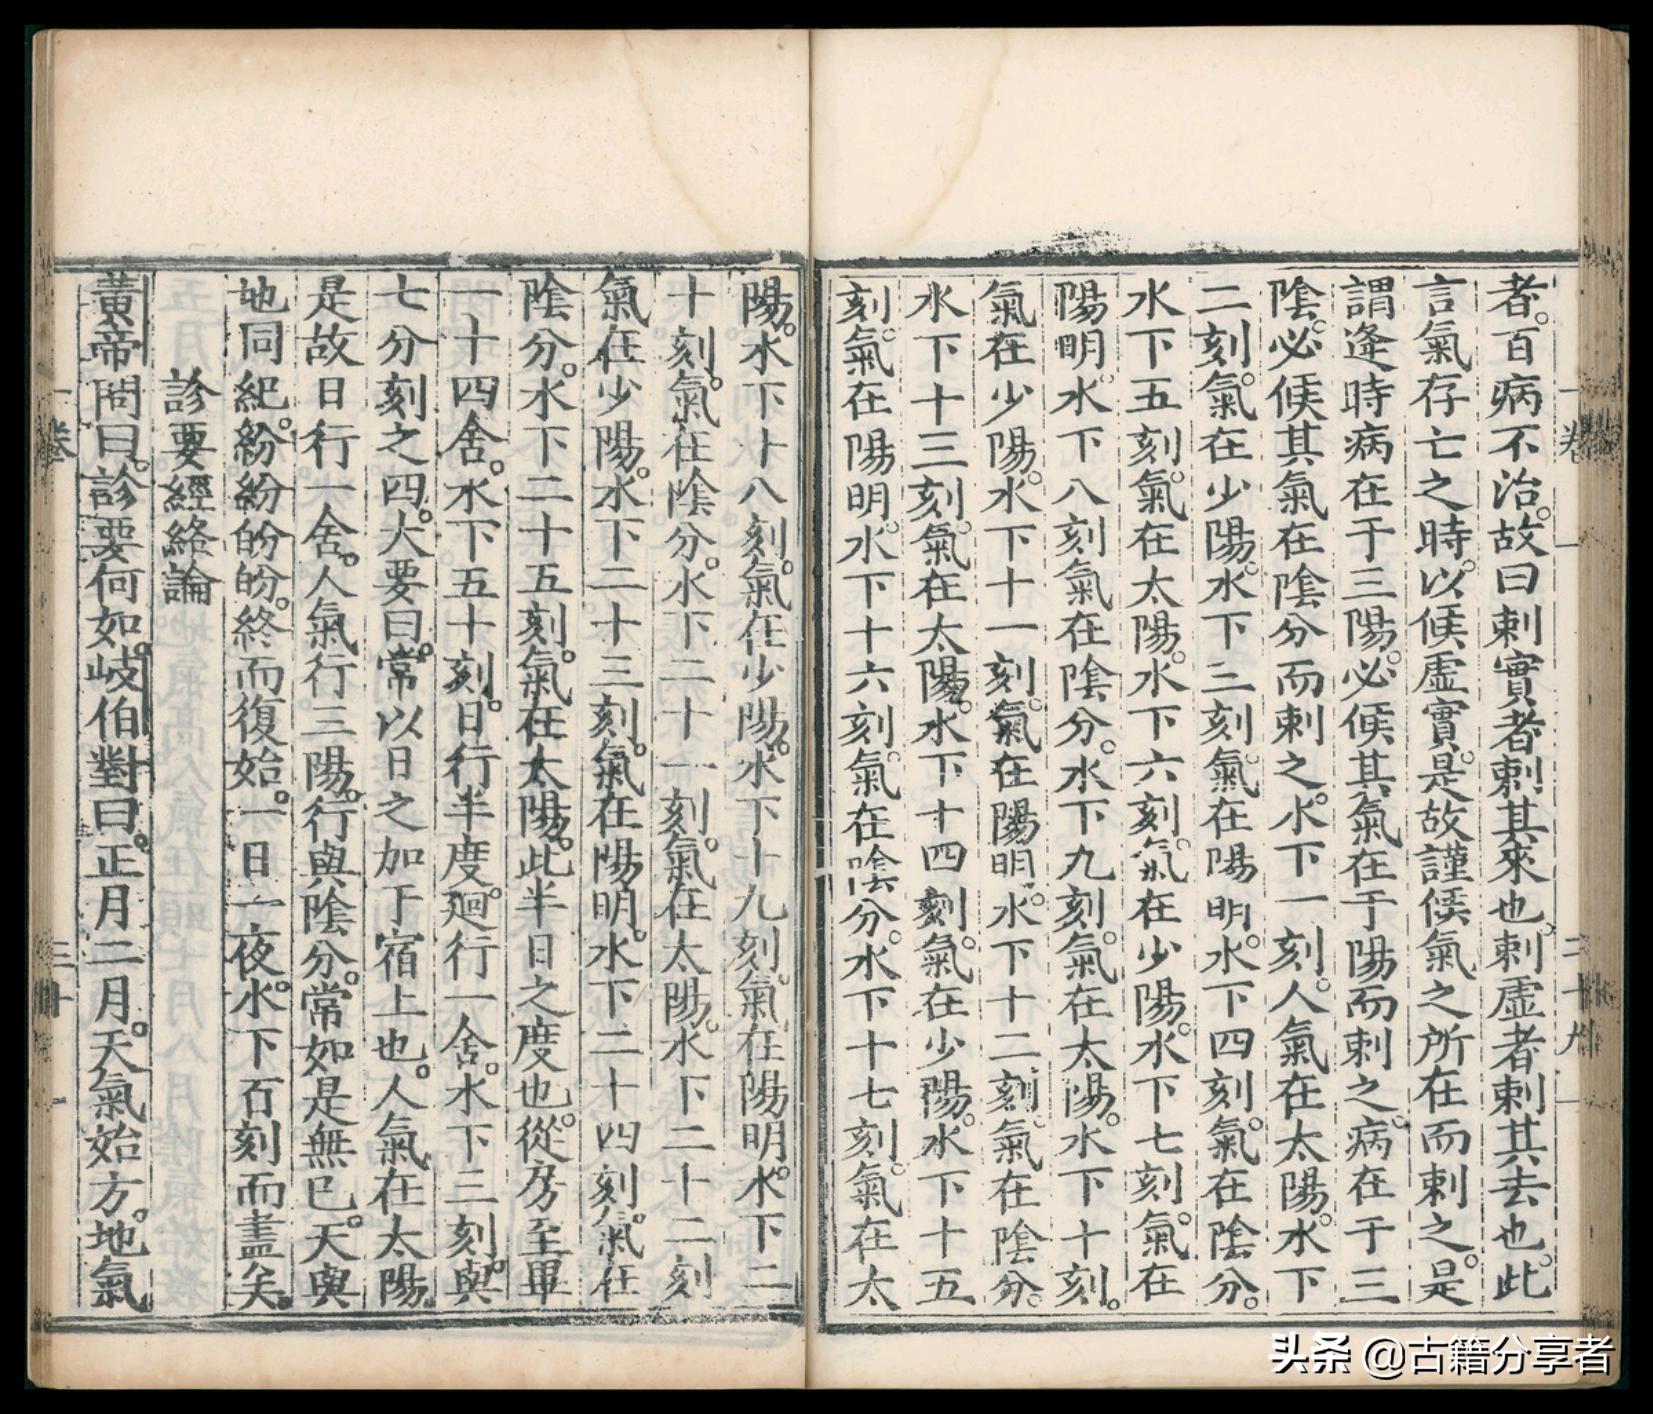 者。百病不治。故曰刺實者刺其來也。刺虛者刺其去也。此
言氣存亡之時。以候虛實。是故謹候氣之所在而刺之。是
謂逢時病在于三陽。必候其氣在于陽而刺之。病在于三
陰。必候其氣在陰分而刺之。水下一刻。人氣在太陽。水下
二刻。氣在少陽。水下三刻。氣在陽明。水下四刻。氣在陰分。
水下五刻。氣在太陽。水下六刻。氣在少陽。水下七刻。氣在
陽明。水下八刻氣在陰分。水下九刻。氣在太陽。水下十刻。
氣在少陽。水下十一刻。氣在陽明。水下十二刻。氣在陰分。
水下十三刻。氣在太陽。水下十四刻。氣在少陽。水下十五
刻。氣在陽明。水下十六刻。氣在陰分。水下十七刻。氣在太
陽。水下十八刻。氣在少陽。水下十九刻。氣在陽明。水下二
十刻。氣在陰分。水下二十一刻。氣在太陽。水下二十二刻
氣在少陽。水下二十三刻。氣在陽明。水下二十四刻。氣在
陰分。水下二十五刻。氣在太陽。此半日之度也。從房至畢
一十四舍。水下五十刻。日行半度。廻行一舍。水下三刻。與
七分刻之四。大要曰。常以日之加于宿上也。人氣在太陽。
是故日行一舍。人氣行三陽。行與陰分。常如是無已。天與
地同紀。紛紛盼盼。終而復始。一日一夜。水下百刻而盡矣。
診要經絡論
黃帝問曰。診要何如。岐伯對曰。正月二月。天氣始方。地氣
一卷
二十九
一卷
三十
头条 @古籍分享者